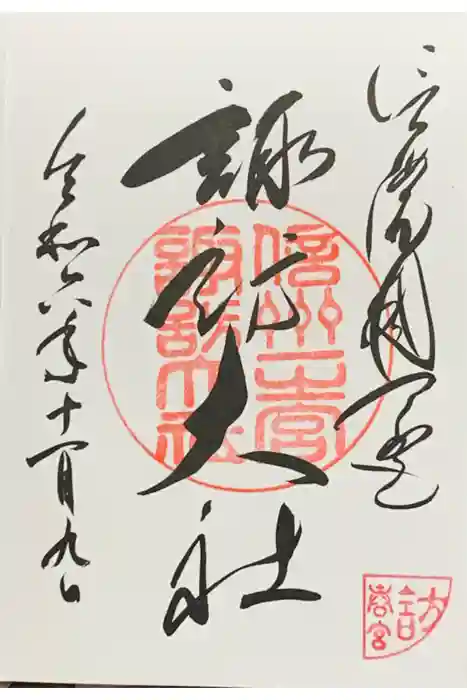 信濃國一宮
諏訪大社
令和六年十一月九日
信州一宮
諏訪大社
訪
春宮